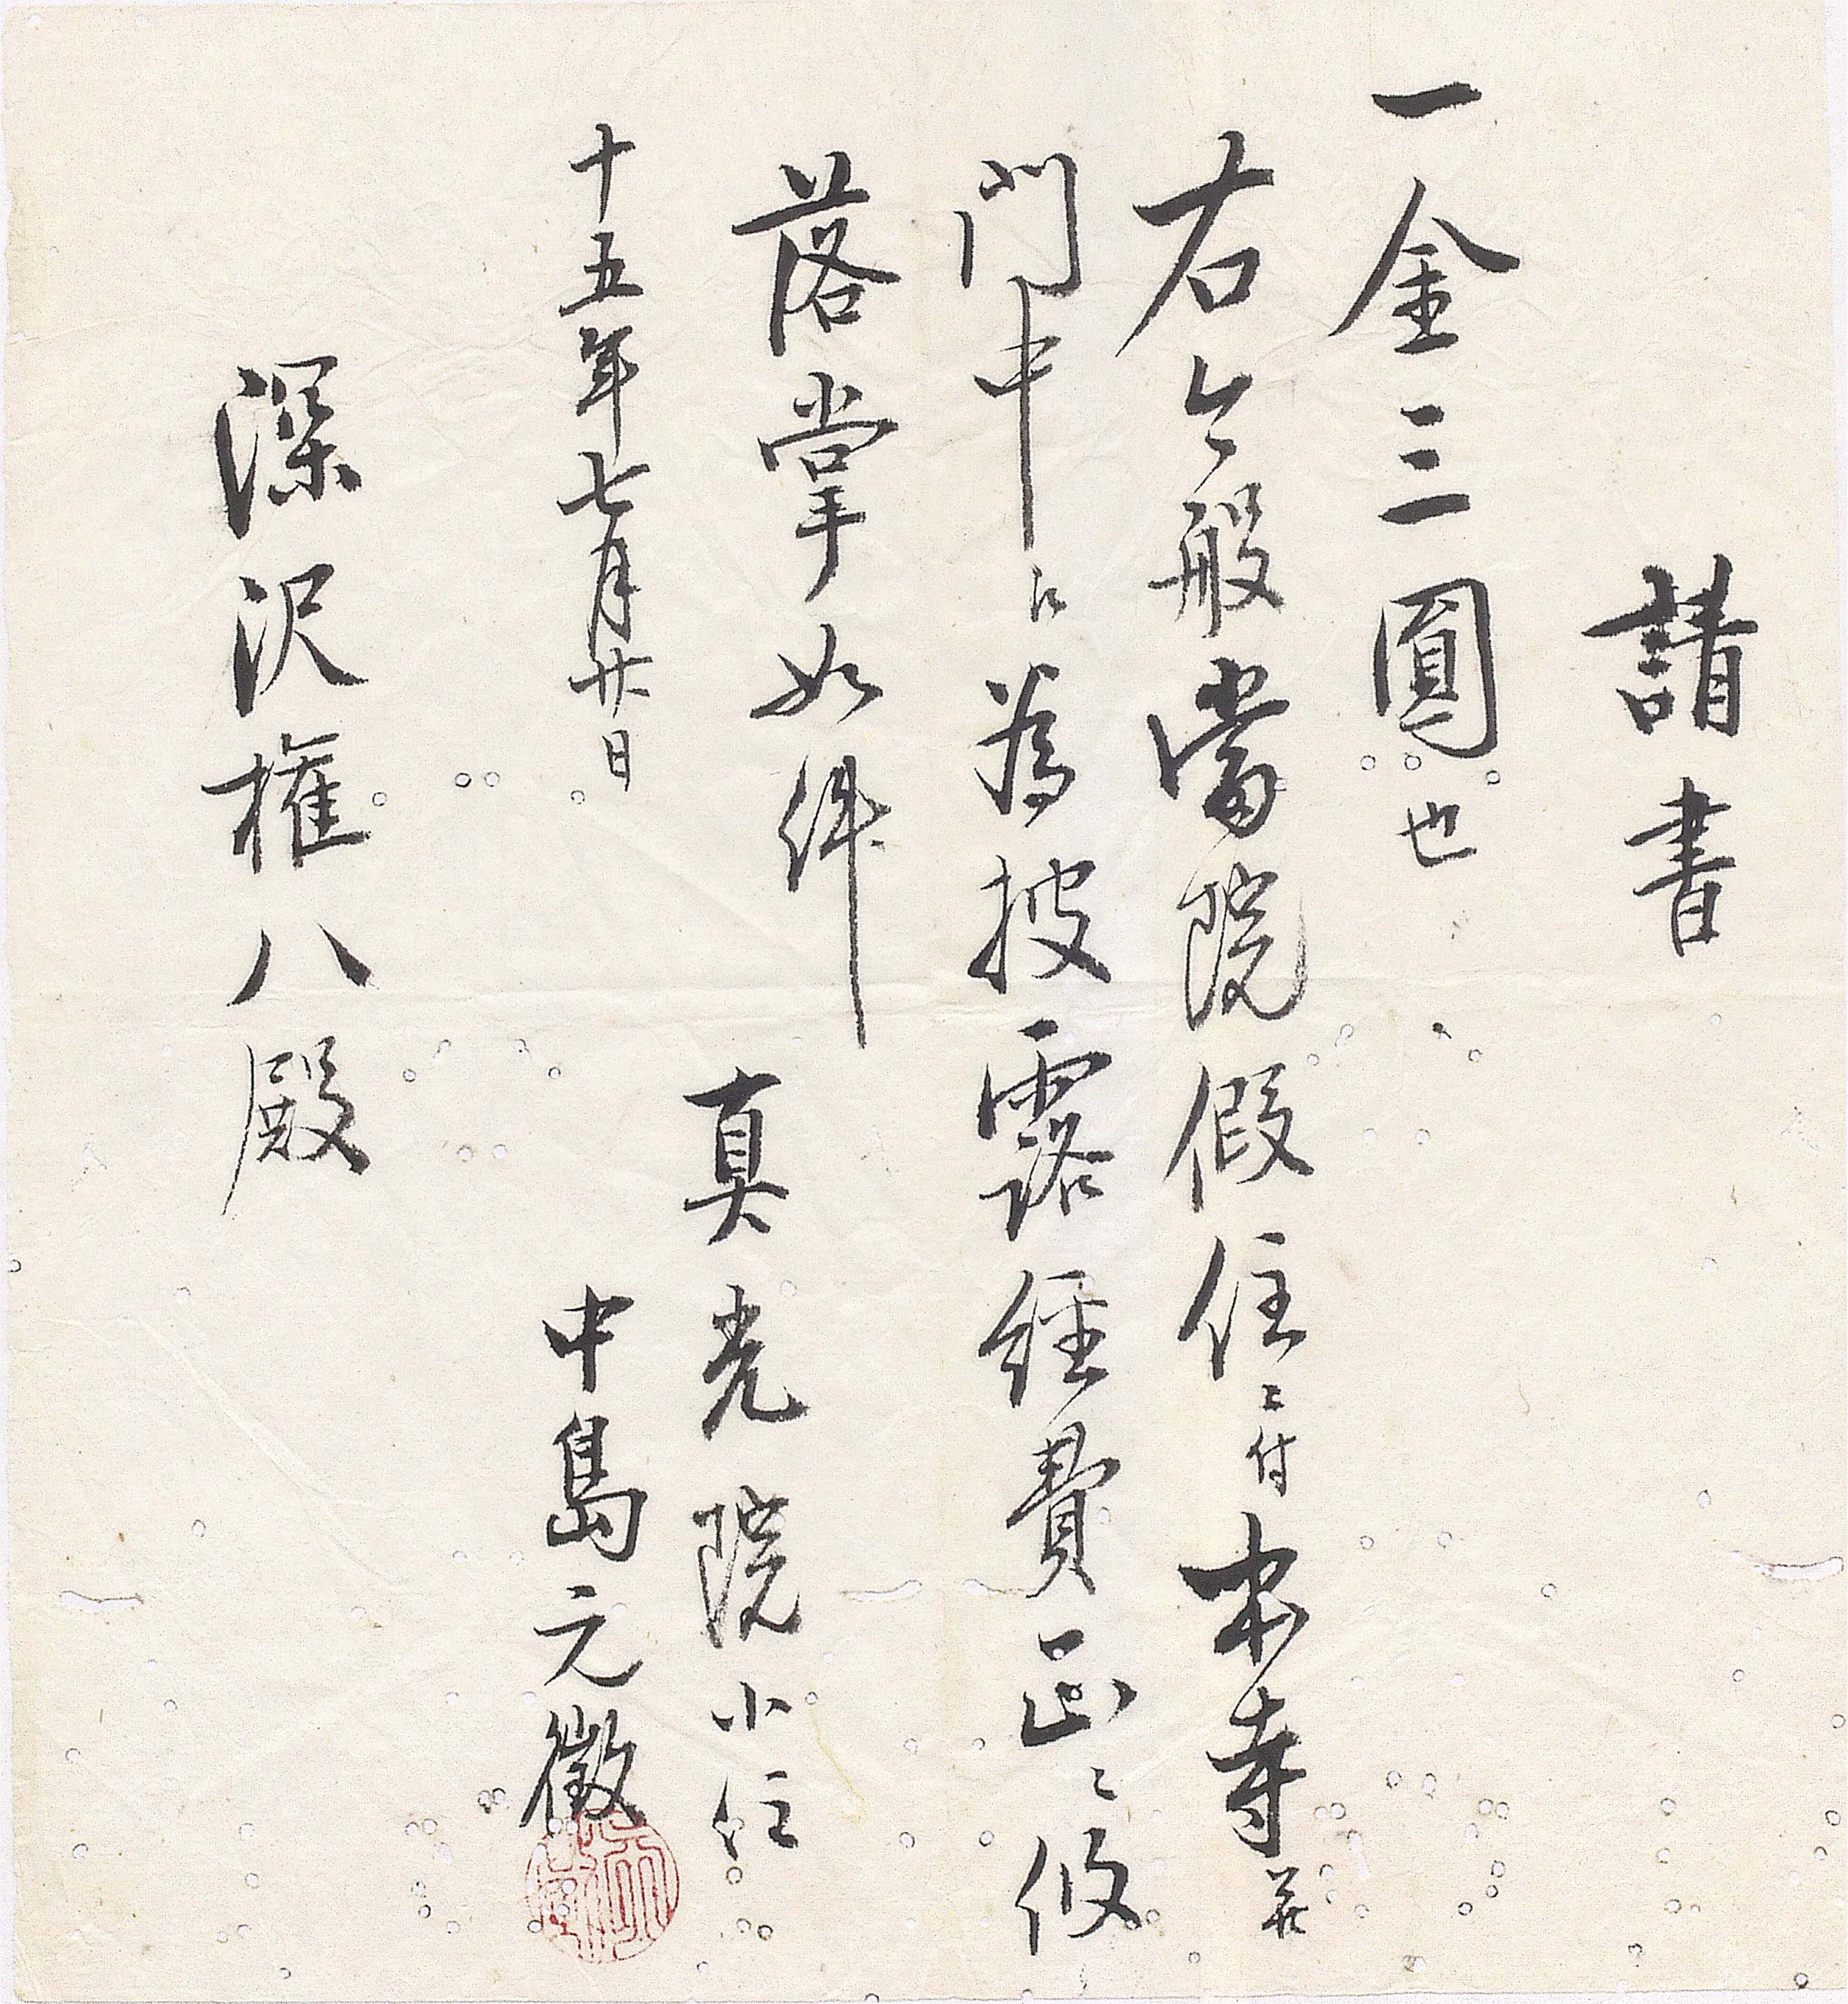 請書
一金三圓也
右今般當院假住ニ付本寺並
門中ニ為披露経費正ニ收
落掌如件
十五年七月廿日
真光院小住
中島元徴
深沢権八殿